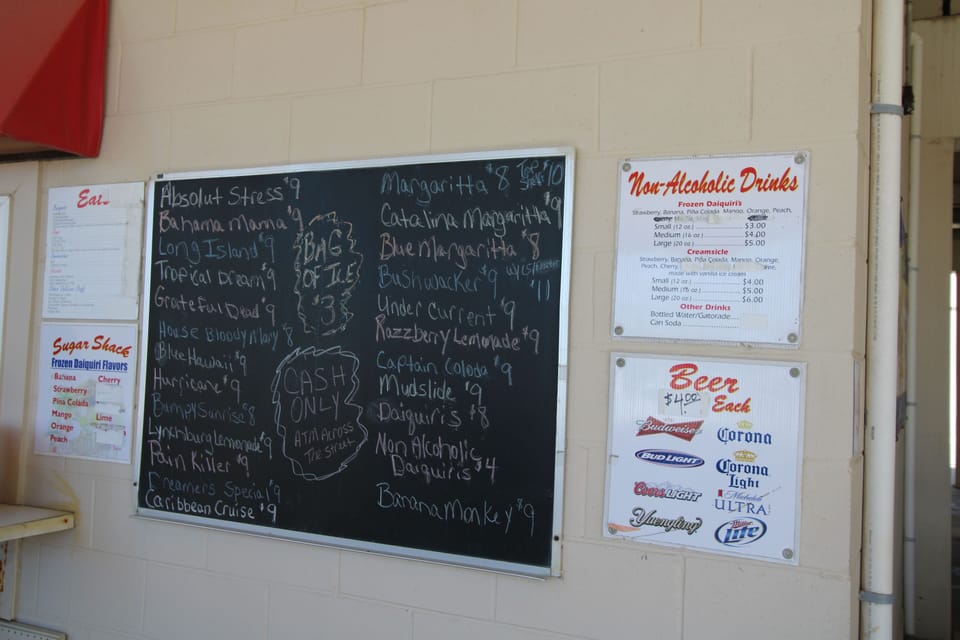 Eat
Sugar Shack
Frozen Daiquiri Flavors
Banana
Cherry
Strawberry
Pina Colada
Mango
Lime
Orange
Peach
Absolut Stress $9
Bahama Mama $9
Long Island $9
Tropical Dream $9
Grateful Dead $9
House Bloody Mary $8
Blue Hawaii $9
Hurricane $9
Bumpy Sunrise $8
Lynchburg Lemonade $9
Pain Killer $9
Dreamers Special $9
Caribbean Cruise $9
BAG
OF ICE
$3
CASH
ONLY
ATM Across
The street
Margaritta $8 Top Shelf $10
Catalina Margaritta $9
Blue Margaritta $8
Bushwacker $9 w/ 151 Floater $11
Under Current $9
Razzberry Lemonade $9
Captain Colada $9
Mudslide $9
Daiquiris $8
Non Alcoholic
Daiquiris $4
Banana Monkey $9
Non-Alcoholic Drinks
Frozen Daiquiri's
Strawberry, Banana, Piña Colada, Mango, Orange, Peach,
Small (12 oz.) $3.00
Medium (16 oz.) $4.00
Large (20 oz.) $5.00
Creamsicle
Strawberry, Banana, Piña Colada, Mango, Orange,
Peach, Cherry,
made with vanilla ice cream
Small (12 oz.) $4.00
Medium (16 oz.) $5.00
Large (20 oz.) $6.00
Other Drinks
Bottled Water/Gatorade
Can Soda
Beer
$4.00
Each
Budweiser
Corona
BUD LIGHT
Corona
Light
Coors LIGHT
Michelob
ULTRA
Yuengling
Miller
Lite